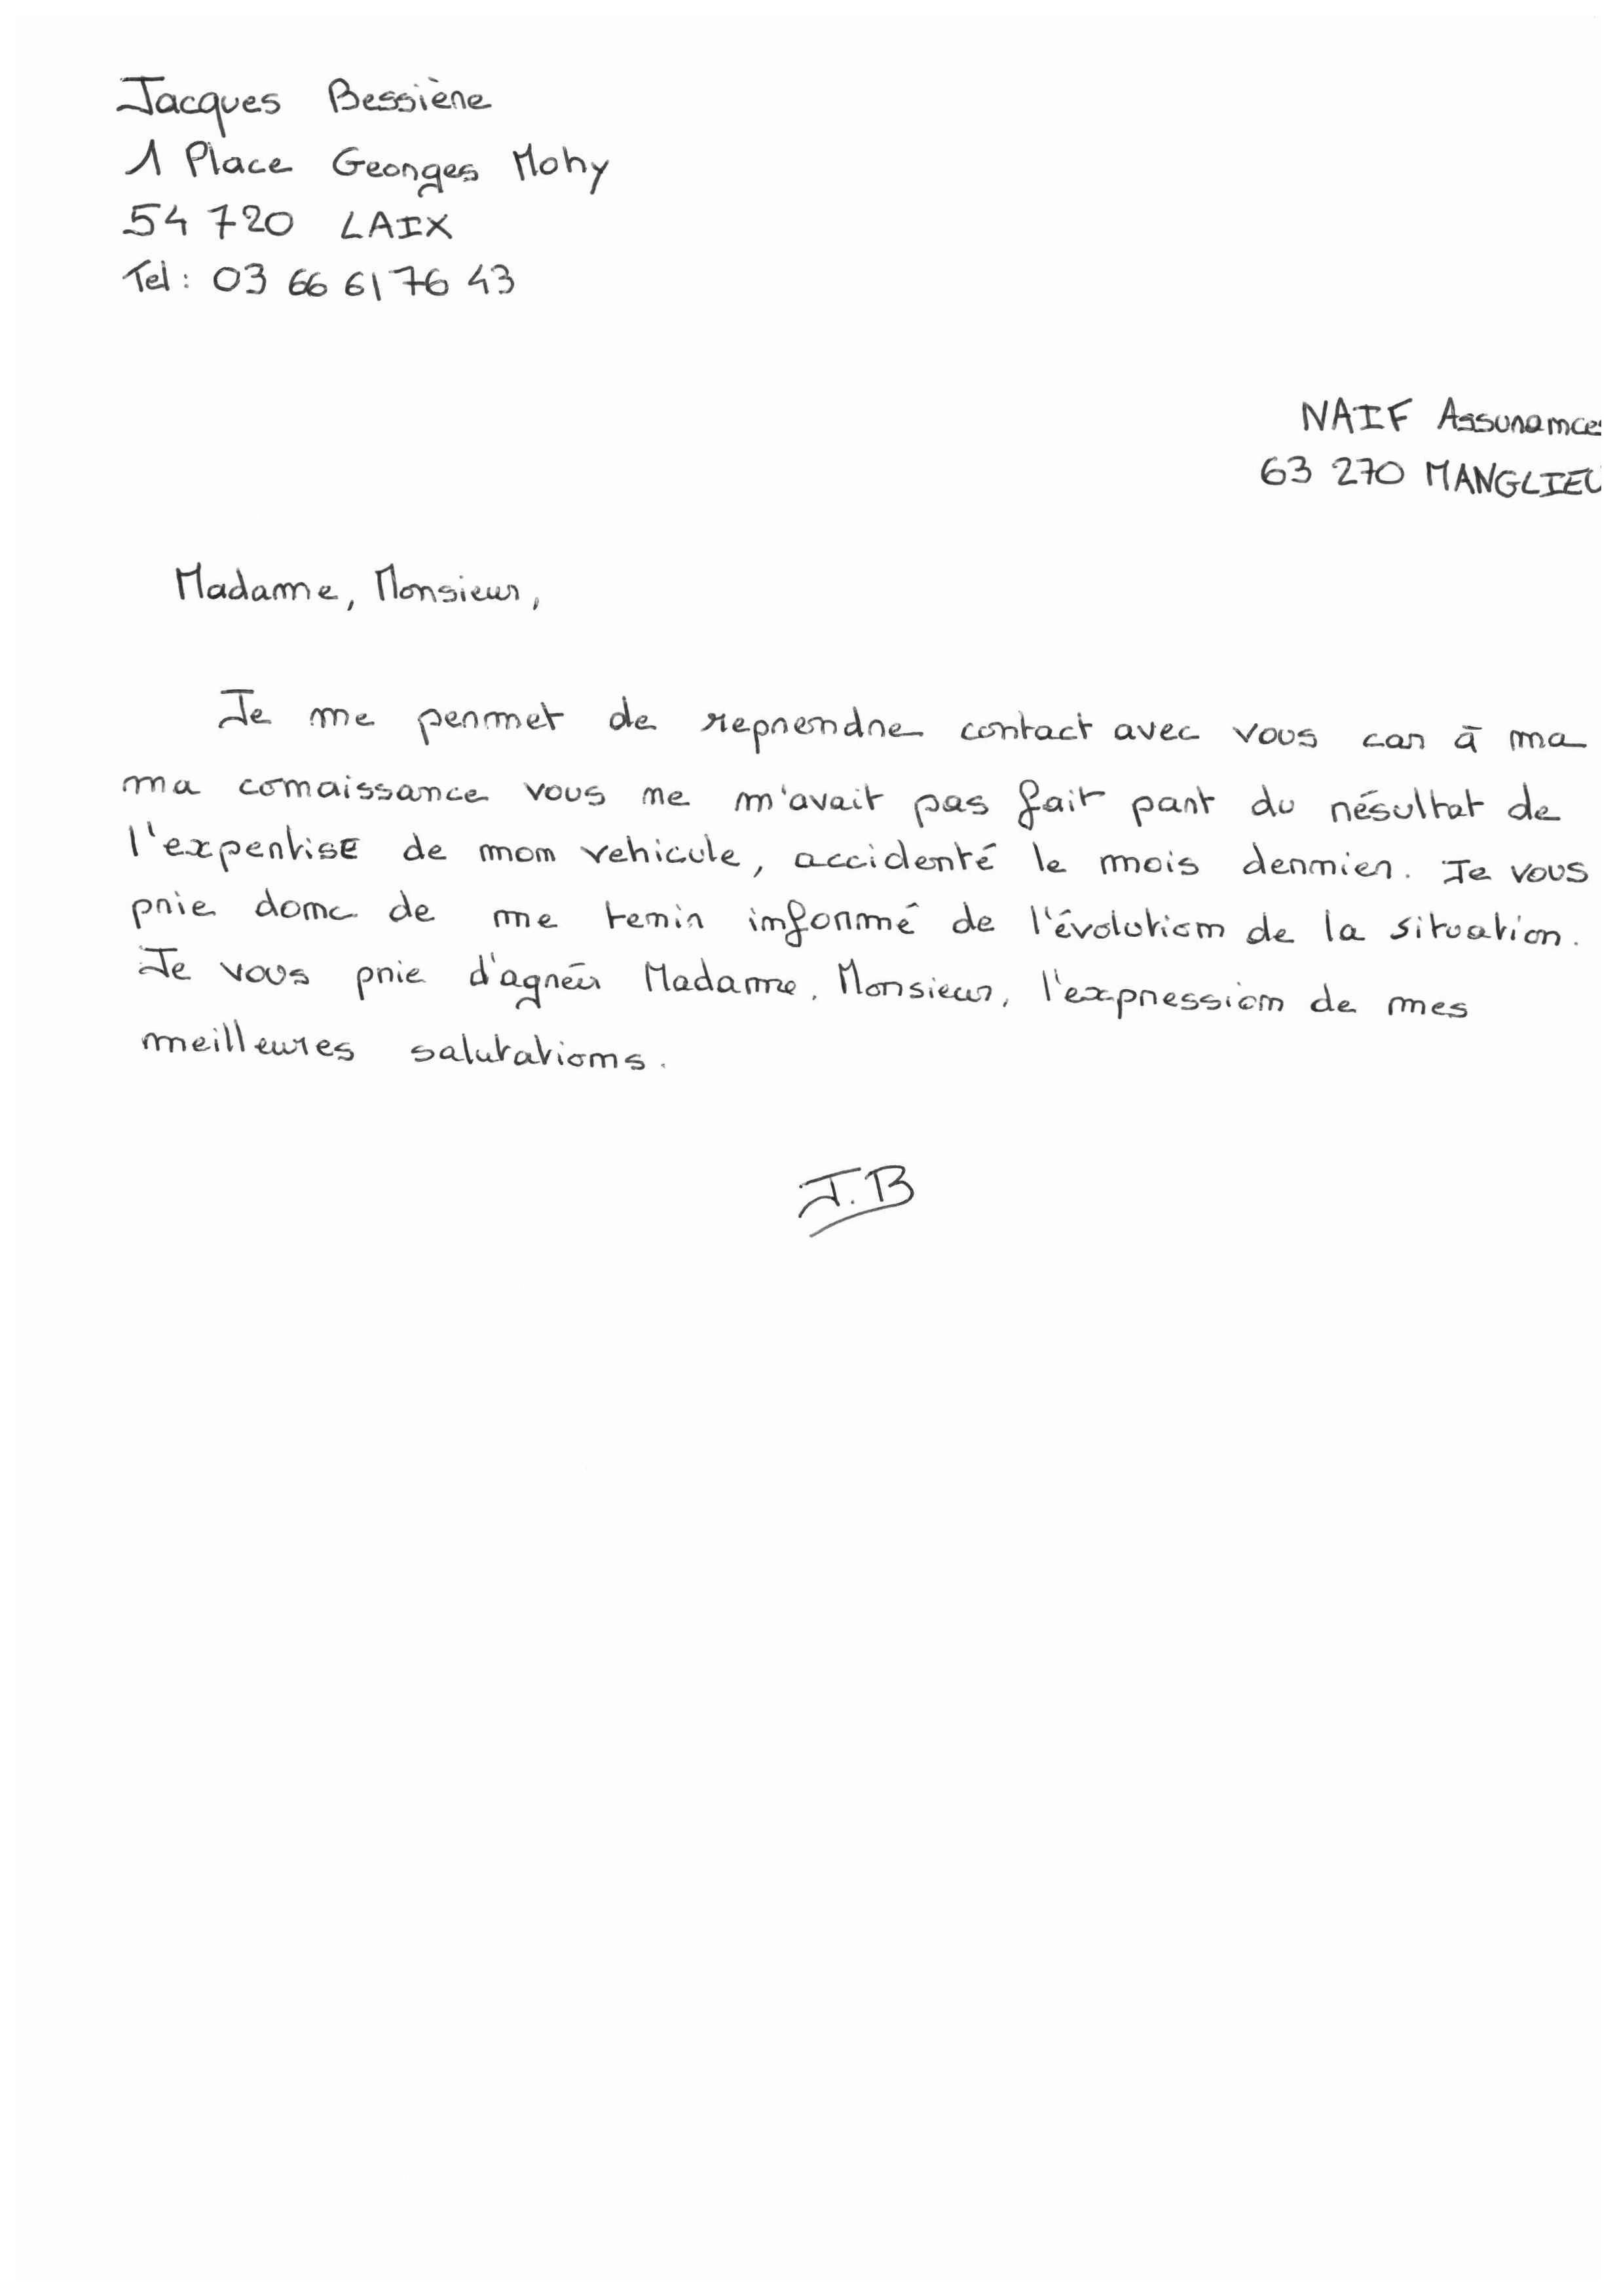 Jacques Bessière
1 Place Georges Mohy
54 720 LAIX
Tel : 03 66 61 76 43
NAIF Assurances
63 270 MANGLIEU
Madame, Monsieur,
Je me permet de reprendre contact avec vous car à ma
ma connaissance vous ne m'avait pas fait part du résultat de
l'expertise de mon vehicule, accidenté le mois dernier. Je vous
prie donc de me tenir informé de l'évolution de la situation.
Je vous prie d'agréer Madame, Monsieur, l'expression de mes
meilleures salutations.
J.B